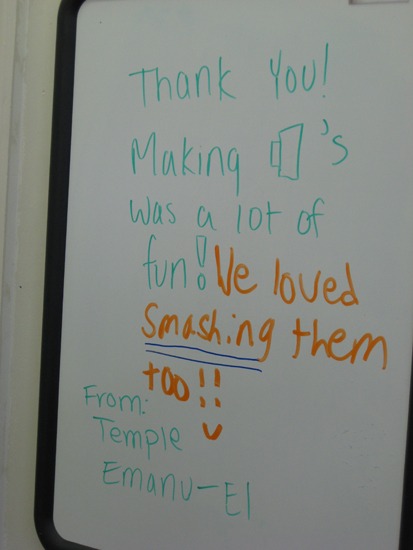 Thank You!
Making 's
was a lot of
fun! We loved
Smashing them
too!!
From:
Temple
Emanu-El